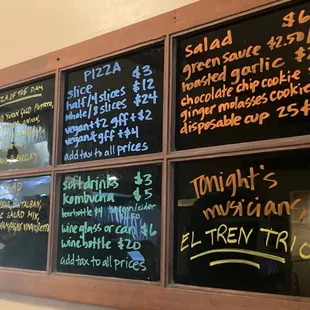 ZZA OF THE DAY
YUKON GOLD POTATO,
PIZZA
slice $3
half/4 slices $12
whole/8 slices $24
vegan+$2 gf+$2
vegan & gf+$4
add tax to all prices
Salad $6
green sauce +2.50/
roasted garlic +2
chocolate chip cookie
ginger molasses cookie
disposable cup 25¢
SALAD
SALAD MIX,
soft drinks $3
kombucha $5
wine glass or can $6
wine bottle $20
add tax to all prices
Tonight's
musicians
EL TREN TRIO